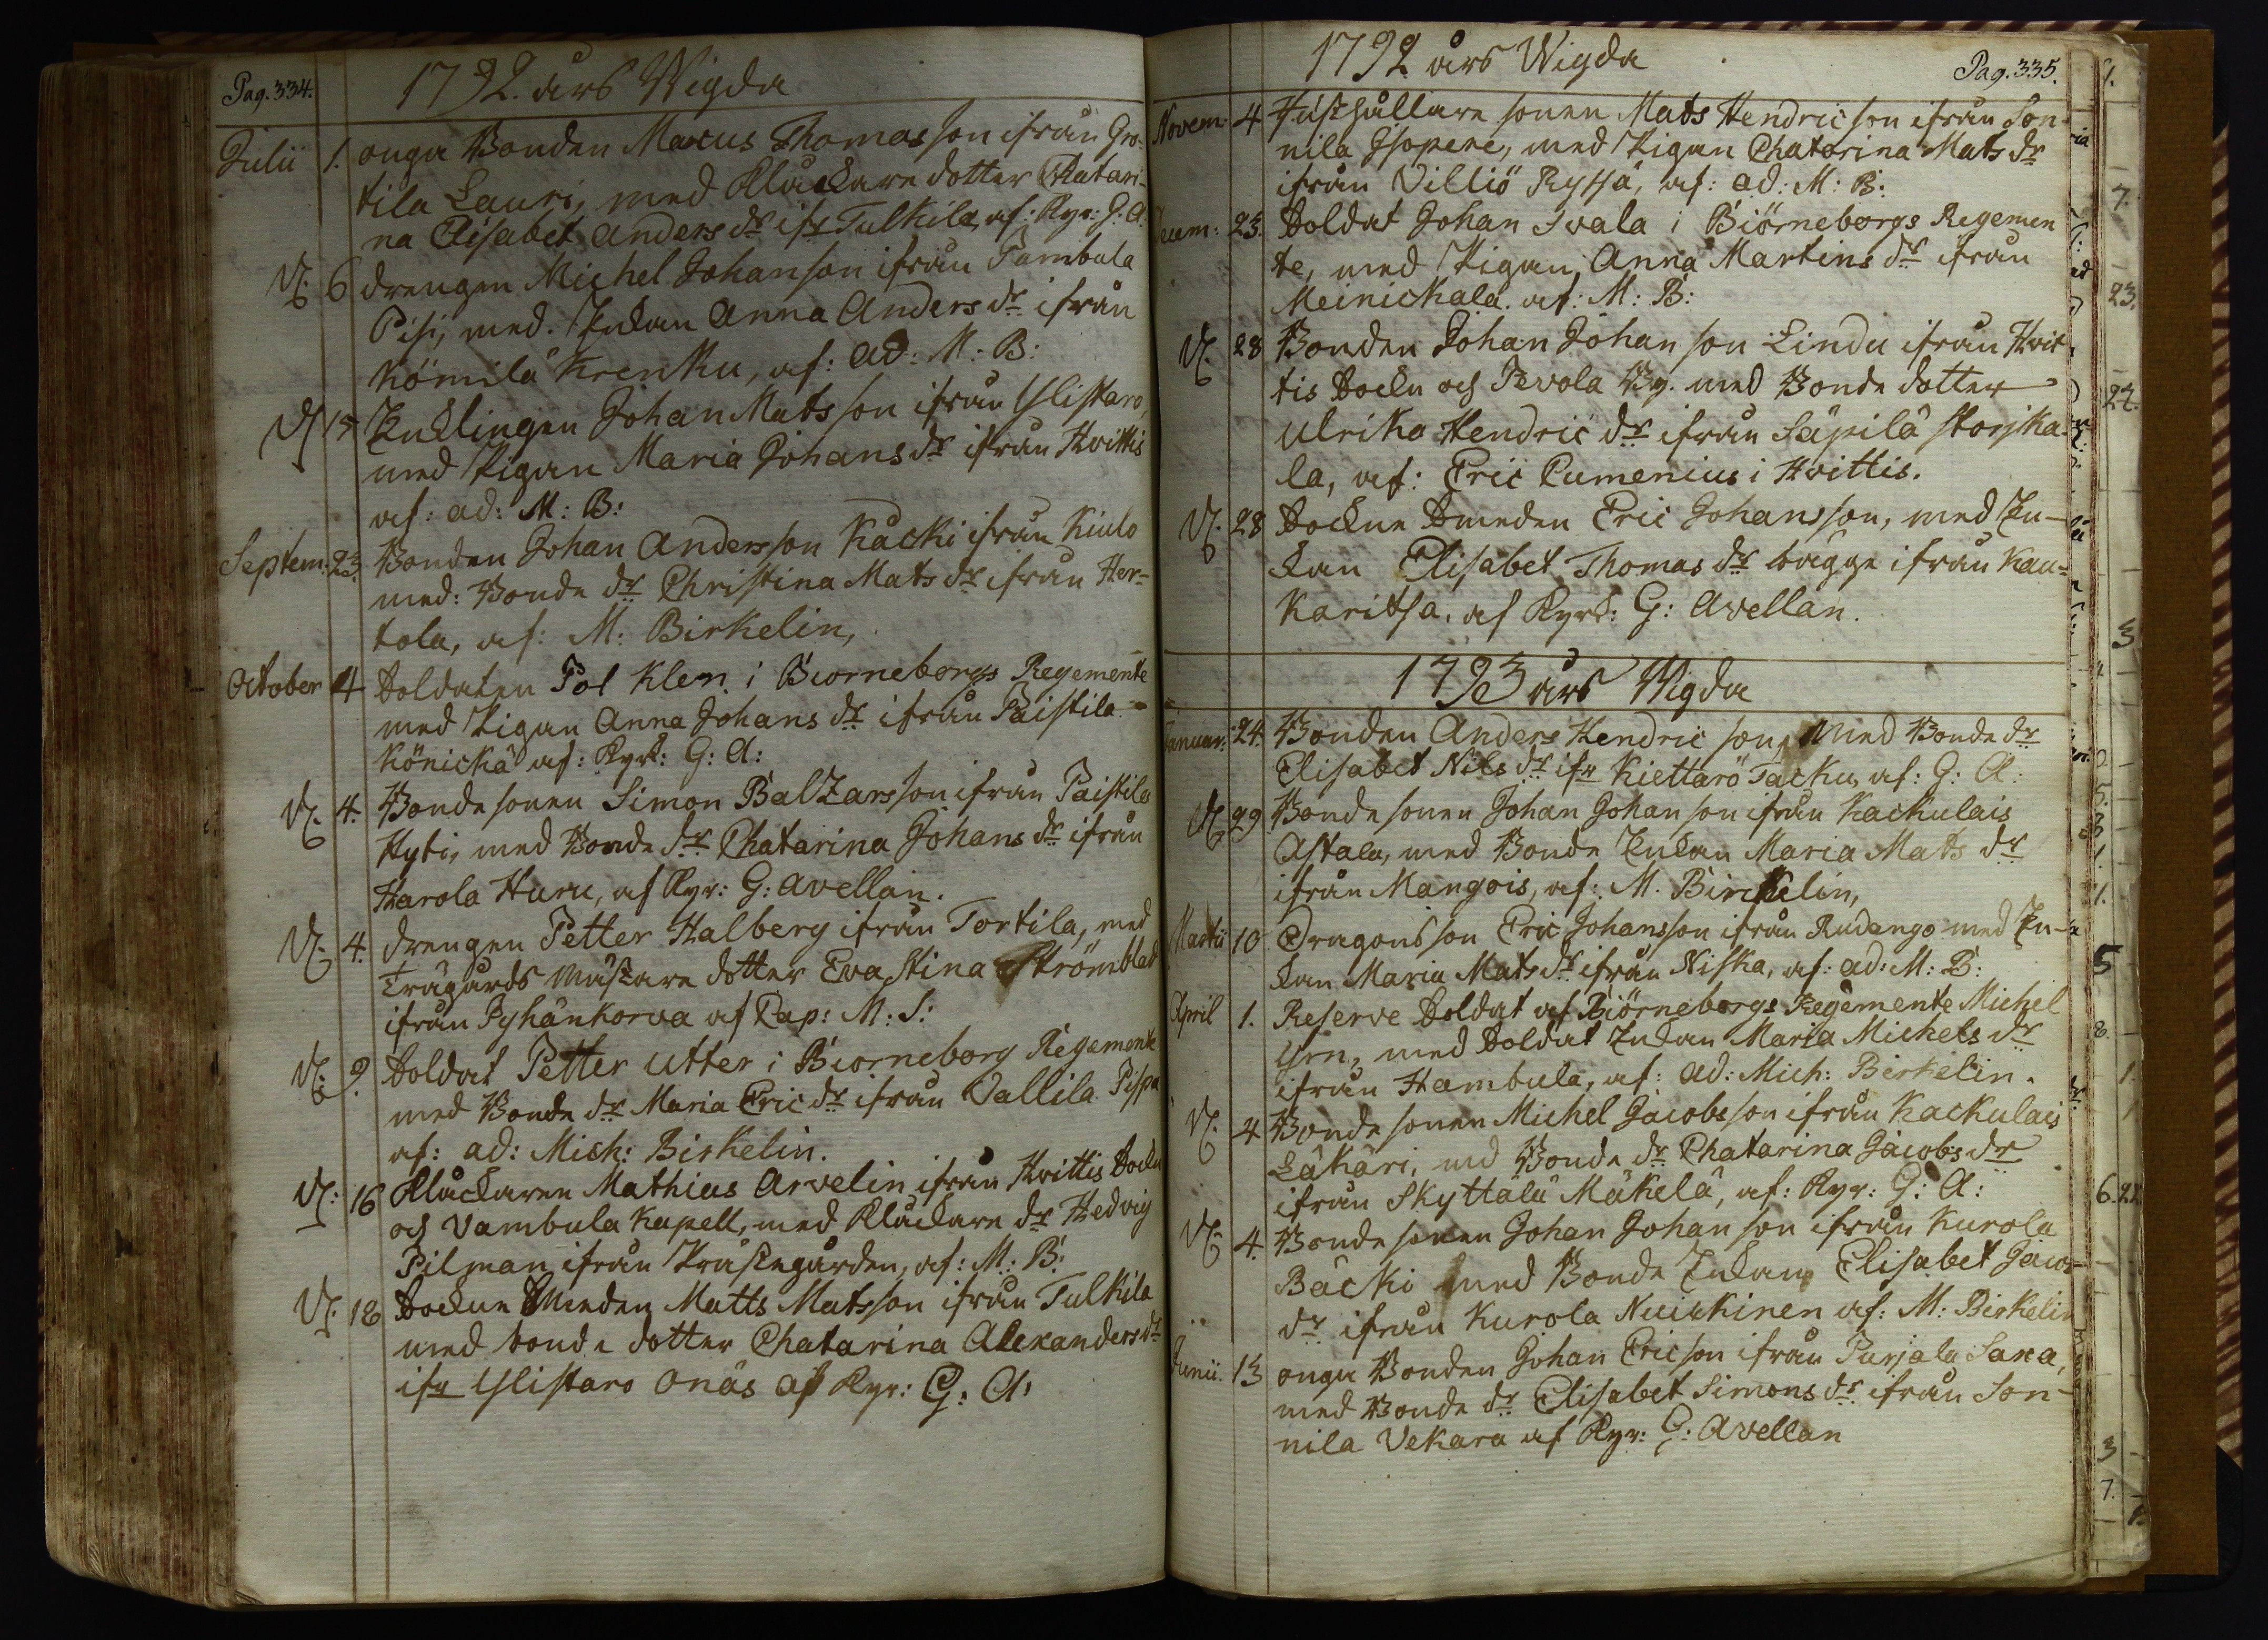 Pag. 334.
1792. års Wigda
Julii 1. unga Bonden Marcus Thomasson ifrån Gro-
tila Lauri, med Kläckare dotter Chatari-
na Elisabet Anders dr ifr Tulkila, af: Kyr: G. A.
6 drengen Michel Johanson ifrån Tambula
Pisi, med Enkan Anna Anders dr ifrån
Kömilä Krenku, af: ad: M: B:
15 Enklingen Johan Matsson ifrån Ylistaro,
med Pigan Maria Johans dr ifrån Hvittis
af: ad: M: B:
Septem: 23. Bonden Johan Andersson Kåcki ifrån Kiulo
med: Bonde dr Christina Mats dr ifrån Her-
tola, af: M: Birkelin,
October 4 Soldaten Pol Klen i Biorneborgs Regemente
med Pigan Anna Johans dr ifrån Paistila
Könickä af: Kyrk: G: A:
4. Bondesonen Simon Balzarsson ifrån Paistila
Hyti, med Bonde dr Chatarina Johans dr ifrån
Harola Huru, af Kyr: G: Avellan.
4. drengen Petter Halberg ifrån Tortila, med
Trägårds Mästare dotter Eva Stina Strömblad
ifrån Pyhänkorva af Cap: M: S:
9. Soldat Petter Utter i Biorneborg Regemente
med Bonde dr Maria Eric dr ifrån Vallila Pispa
af: ad: Mich: Birkelin.
16 Klåckaren Mathias Arvelin ifrån Hvittis Sockn
och Vambula Kapell, med Klåckare dr Hedvig
Pilman ifrån Prästegården, af: M: B:
18 Sockne Smeden Matts Matsson ifrån Tulkila
med bonde dotter Chatarina Alexanders dr
ifr Ylistaro Onäs af Kyr: G: A:
1792 års Wigda
Pag. 335.
Novem: 4. Hushållare sonen Mats Hendricson ifrån Son-
nila Isopere, med Pigan Chatarina Mats dr
ifrån Villiö Ryssä, af: ad: M: B:
23. Soldat Johan Svala i Biörneborgs Regemen
te, med Pigan Anna Martins dr ifrån
Meinickala. af: M: B:
28 Bonden Johan Johanson Lindu ifrån Hvit
tis Sockn och Pevola By. med Bonde dotter
Ulrika Hendric dr ifrån Säpilä Storjka-
la, af: Eric Cumenius i Hvittis.
28 Sockne Smeden Eric Johansson, med En-
kan Elisabet Thomas dr bägge ifrån Kau-
karitsa. af Kyrk: G: Avellan.
1793 års Wigda
Januar: 24. Bonden Anders Hendricson, med Bonde dr
Elisabet Nils dr ifr Kiettarö Tacku, af: G: A:
29 Bonde sonen Johan Johanson ifrån Kackulais
Astala, med Bonde Enkan Maria Mats dr
ifrån Mangois, af: M. Birckelin,
Martii 10 Dragons son Eric Johansson ifrån Rudango med En-
kan Maria Mats dr ifrån Niska, af: ad: M: B:
April 1. Reserve Soldat af Biörneborgs Regemente Michel
Yrn, med Soldat Enkan Maria Michels dr
ifrån Hambula, af: ad: Mich: Birkelin.
4 Bonde sonen Michel Jacobsson ifrån Kackulais
Läkäri, med Bonde dr Chatarina Jacobs dr
ifrån Skyttälä Mäkelä, af: Kyr: G: A:
4. Bonde sonen Johan Johanson ifrån Kurola
Bäcki med Bonde Enkan Elisabet Jacobs
dr ifrån Kurola Nuickinen af: M: Birkelin
Junii. 13 unga Bonden Johan Ericson ifrån Purjala Saxa,
med Bonde dr Elisabet Simons dr ifrån Son-
nila Vekara af Kyr: G: Avellan